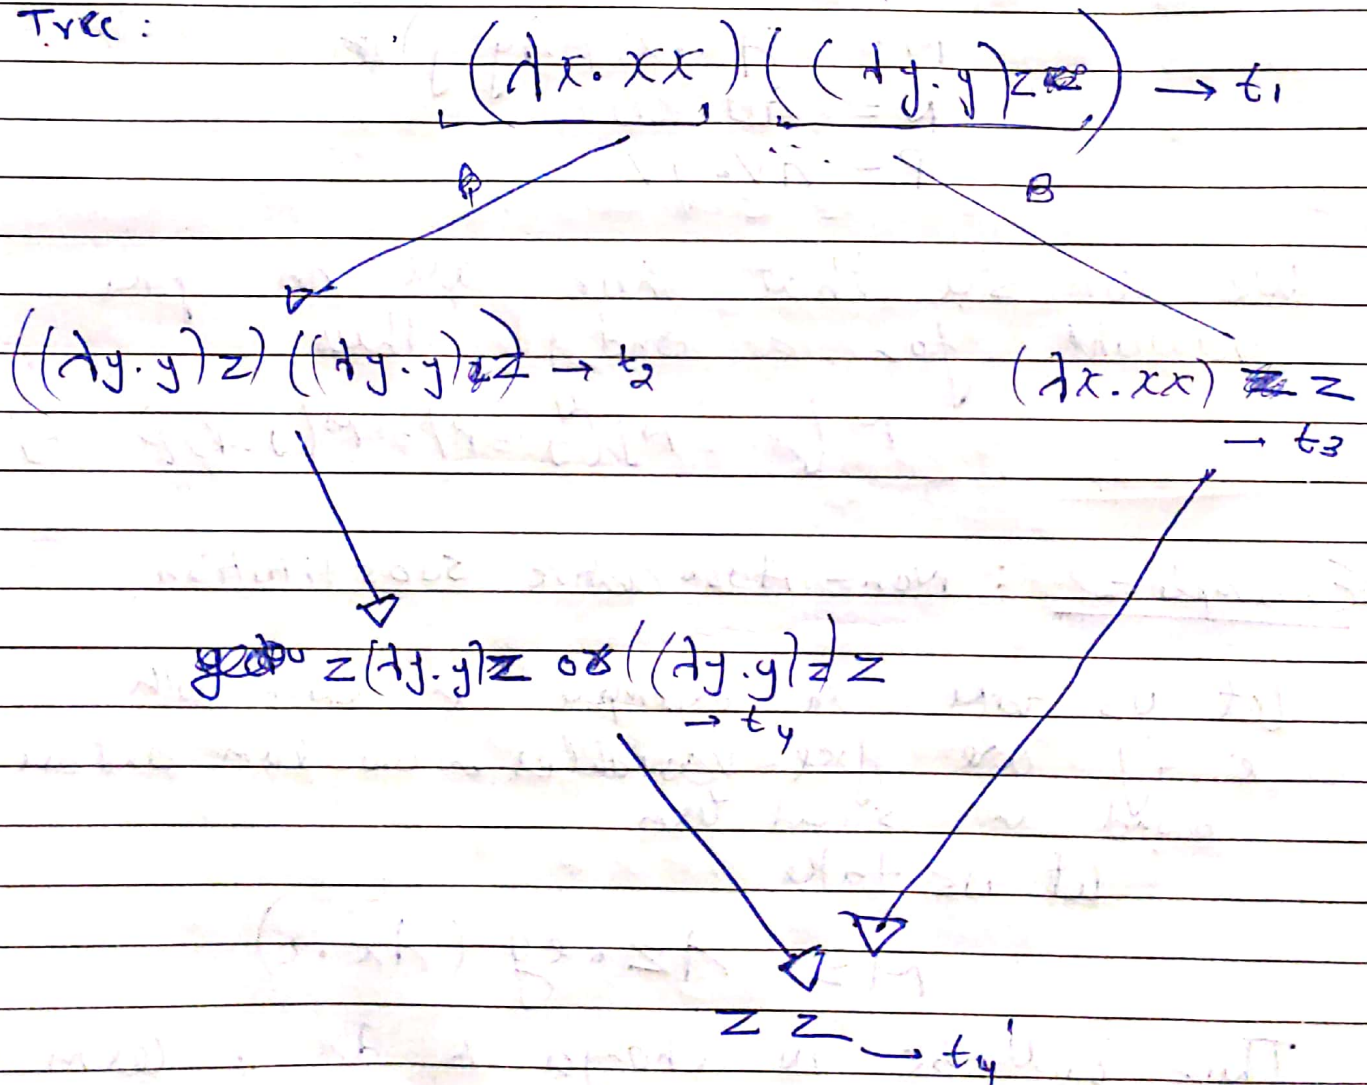 Tree :
(λx.xx) ((λy.y)z) → t₁
A B
((λy.y)z) ((λy.y)z) → t₂
(λx.xx) z
→ t₃
z(λy.y)z or ((λy.y)z)z
→ t₄
z z → t₄'